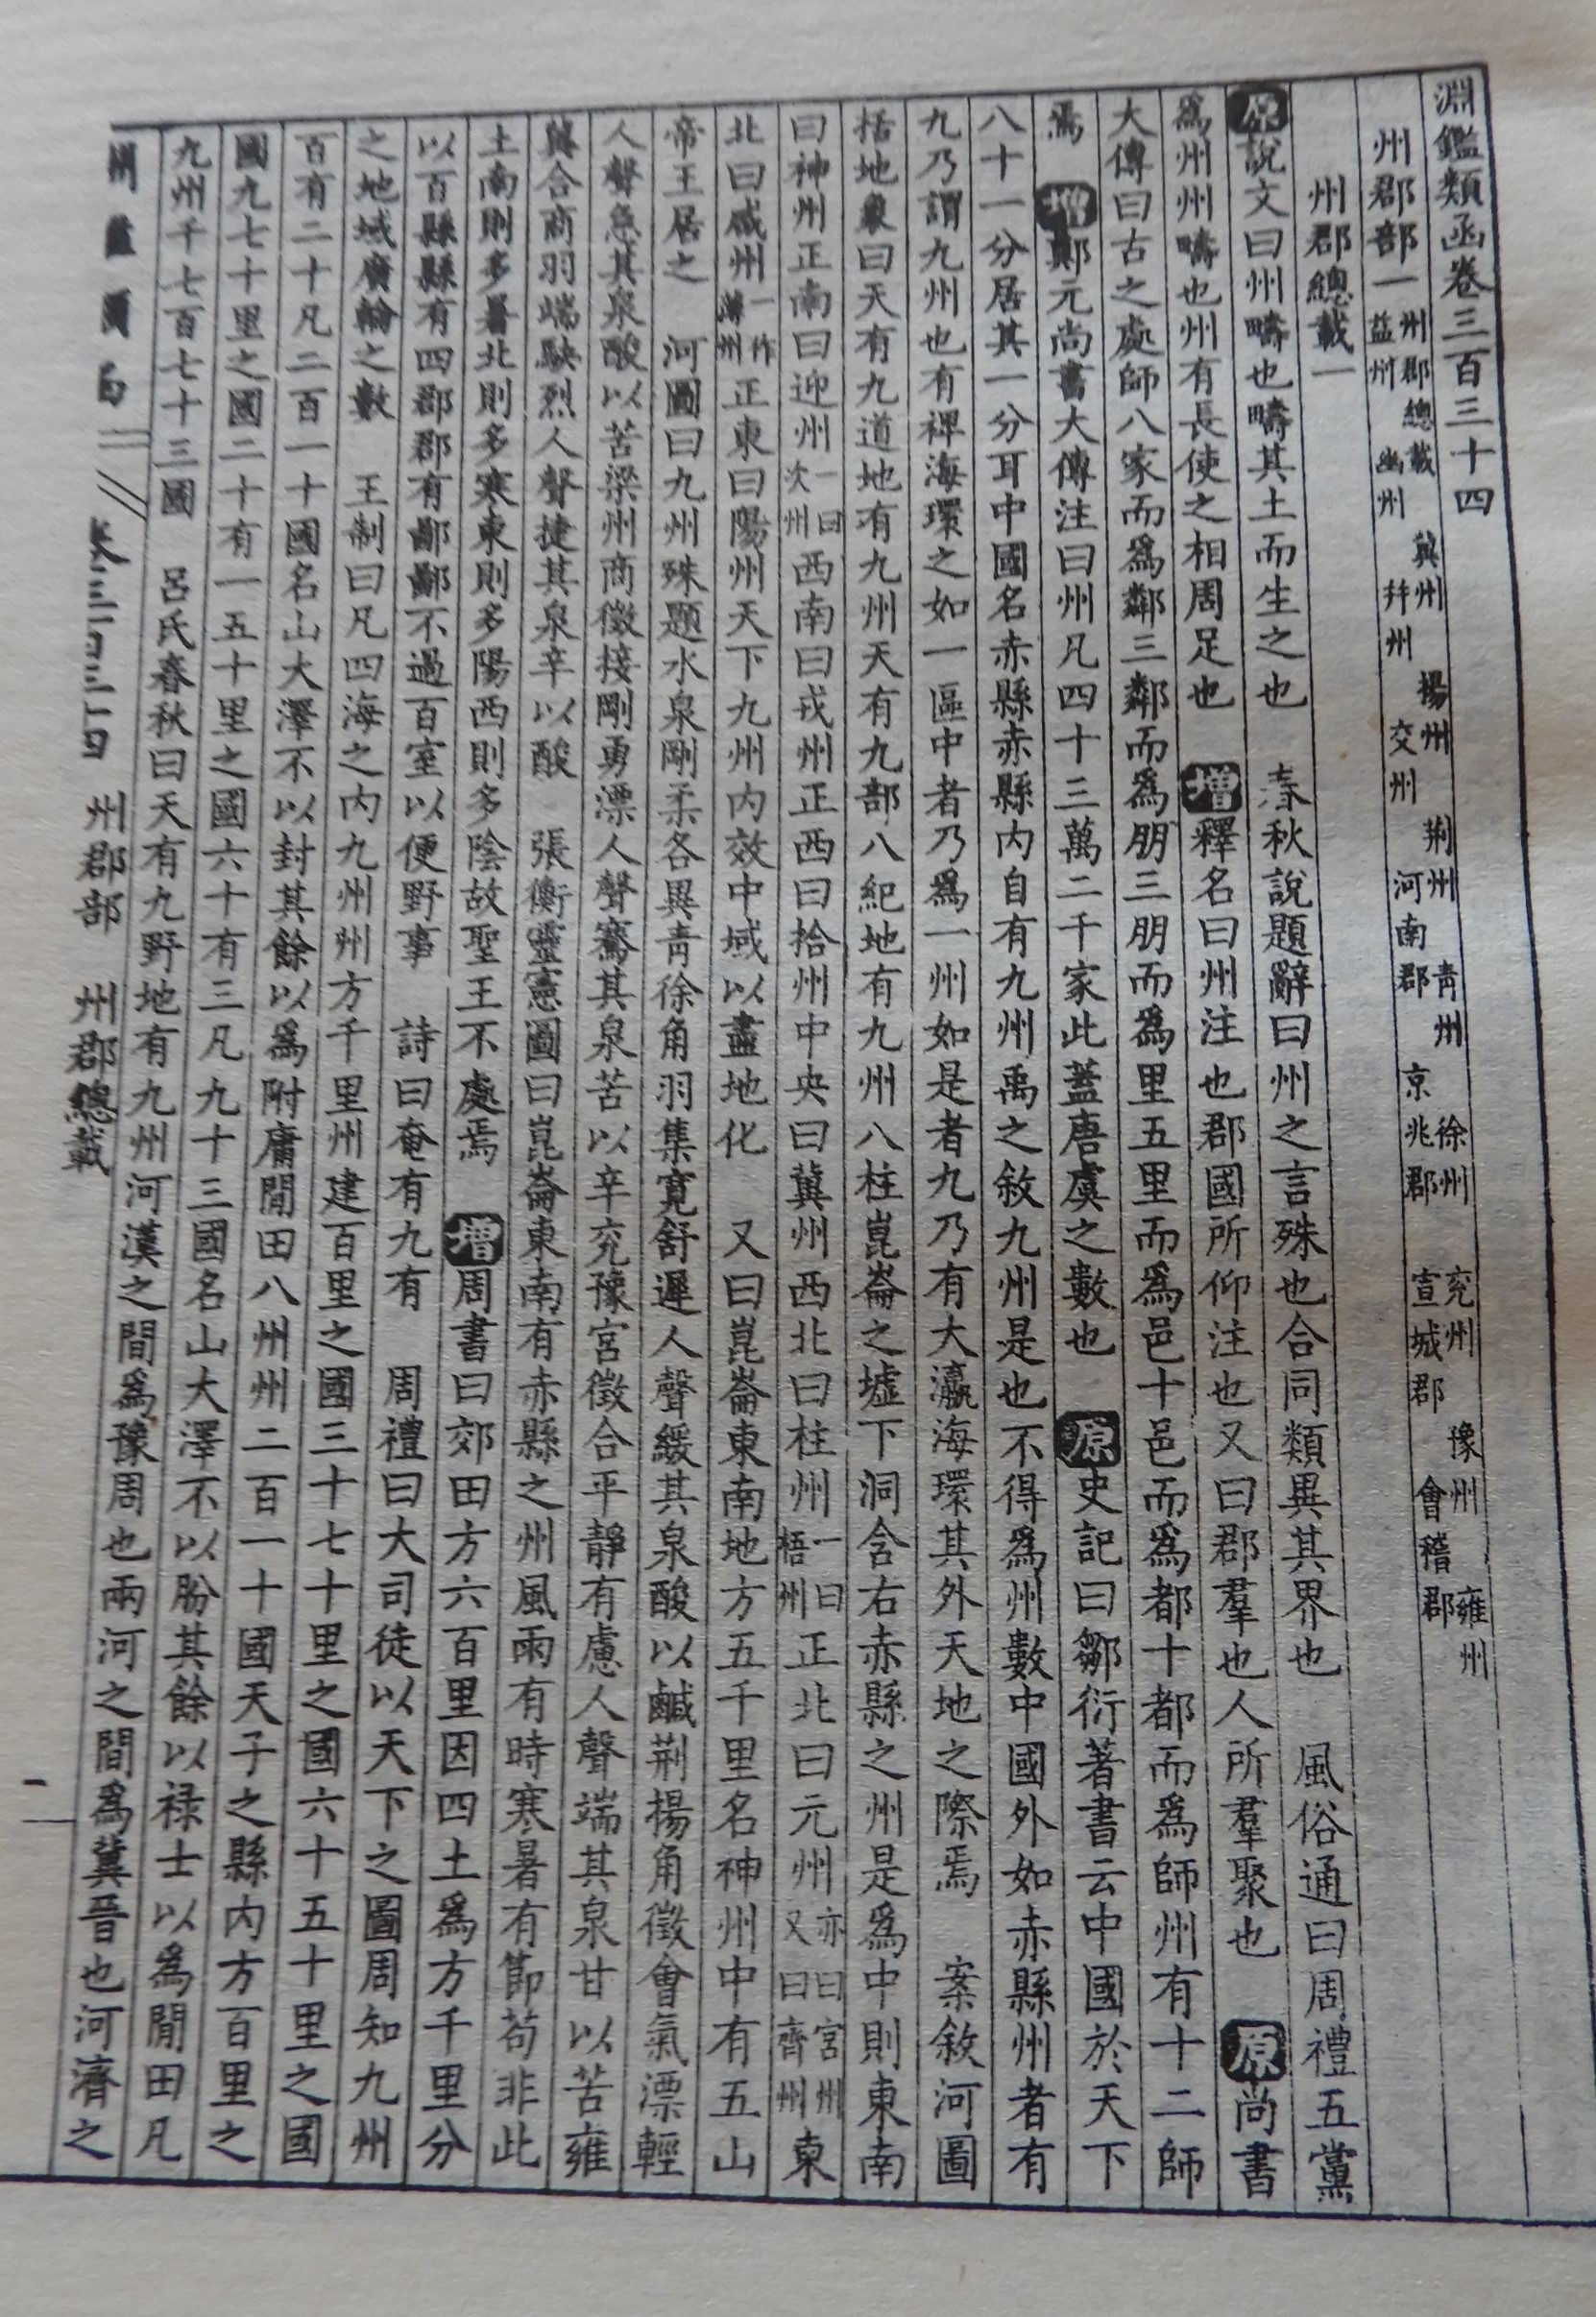 淵鑑類函卷三百三十四
州郡部一 州郡總載 冀州 揚州 荊州 青州 徐州 兗州 豫州 雍州 益州 幽州 幷州 交州 河南郡 京兆郡 宣城郡 會稽郡
州郡總載一
原說文曰州疇也疇其土而生之也 春秋說題辭曰州之言殊也合同類異其界也 風俗通曰周禮五黨
爲州州疇也州有長使之相周足也 增釋名曰州注也郡國所仰注也又曰郡羣也人所羣聚也 原尚書
大傳曰古之處師八家而爲鄰三鄰而爲朋三朋而爲里五里而爲邑十邑而爲都十都而爲師州有十二師
焉 增鄭元尚書大傳注曰州凡四十三萬二千家此蓋唐虞之數也 原史記曰鄒衍著書云中國於天下
八十一分居其一分耳中國名赤縣赤縣內自有九州禹之敘九州是也不得爲州數中國外如赤縣州者有
九乃謂九州也有裨海環之如一區中者乃爲一州如是者九乃有大瀛海環其外天地之際焉 案敘河圖
括地象曰天有九道地有九州天有九部八紀地有九州八柱崑崙之墟下洞含右赤縣之州是爲中則東南
曰神州正南曰迎州一曰次州西南曰戎州正西曰拾州中央曰冀州西北曰柱州一曰梧州正北曰元州亦曰宮州又曰齊州東
北曰咸州一作薄州正東曰陽州天下九州內效中域以盡地化 又曰崑崙東南地方五千里名神州中有五山
帝王居之 河圖曰九州殊題水泉剛柔各異青徐角羽集寬舒遲人聲緩其泉酸以鹹荊揚角徵會氣漂輕
人聲急其泉酸以苦梁州商徵接剛勇漂人聲騫其泉苦以辛兗豫宮徵合平靜有慮人聲端其泉甘以苦雍
冀合商羽端駃烈人聲捷其泉辛以酸 張衡靈憲圖曰崑崙東南有赤縣之州風雨有時寒暑有節苟非此
土南則多暑北則多寒東則多陽西則多陰故聖王不處焉 增周書曰郊田方六百里因四土爲方千里分
以百縣縣有四郡郡有鄙鄙不過百室以便野事 詩曰奄有九有 周禮曰大司徒以天下之圖周知九州
之地域廣輪之數 王制曰凡四海之內九州州方千里州建百里之國三十七十里之國六十五十里之國
百有二十凡二百一十國名山大澤不以封其餘以爲附庸閒田八州州二百一十國天子之縣內方百里之
國九七十里之國二十有一五十里之國六十有三凡九十三國名山大澤不以朌其餘以祿士以爲閒田凡
九州千七百七十三國 呂氏春秋曰天有九野地有九州河漢之間爲豫周也兩河之間爲冀晉也河濟之
州郡部 州郡總載